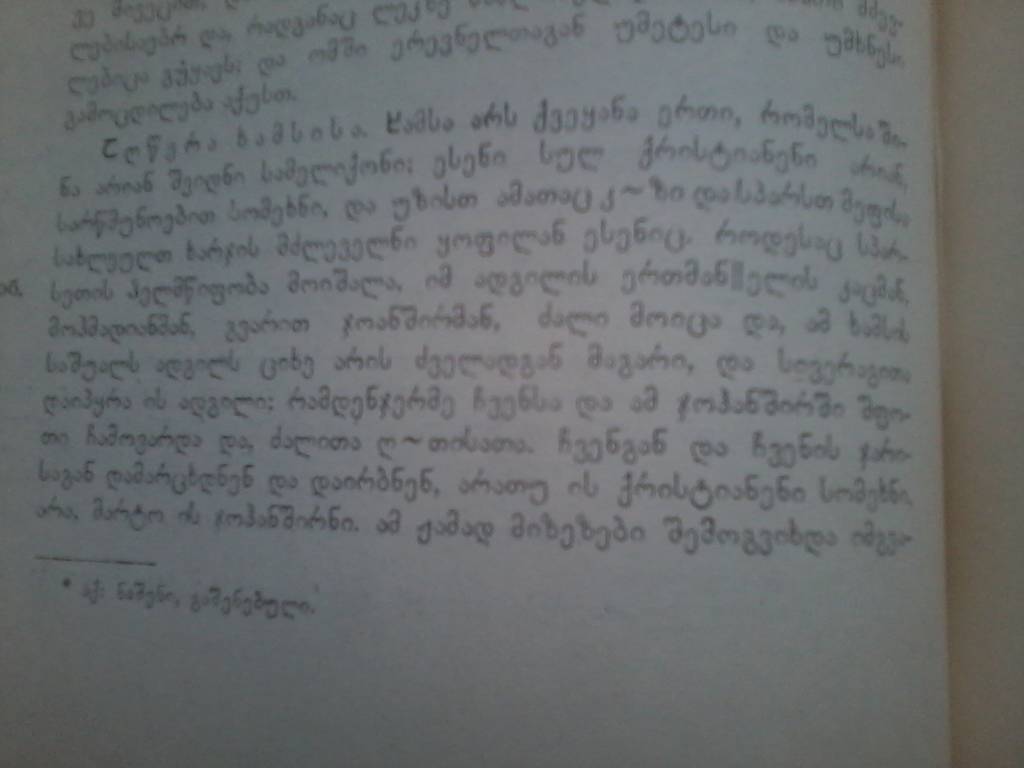 ლებისაებრ და, რადგანაც ლეკზე
ლებიცა გვყავს; და ომში ერევნელთაგან უმეტესი და უმხნესი
გამოცდილება აქვსთ.
აღწერა ხამსისა. ხამსა არს ქვეყანა ერთი, რომელსაში-
ნა არიან შვიდნი სამელიქონი; ესენი სულ ქრისტიანენი არიან,
სარწმუნოებით სომეხნი, და უზისთ ამათაც კ~ზი და სპარსთ მეფისა
სახლეულთ ხარჯის მძლეველნი ყოფილან ესენიც. როდესაც სპარ-
სეთის ჴელმწიფობა მოიშალა, იმ ადგილის ერთმან||ელის კაცმან,
მოჰმადიანმან, გვარით ჯოანშირმან, ძალი მოიცა და, ამ ხამსის
საშუალს ადგილს ციხე არის ძველადგან მაგარი, და სივერაგითა
დაიპყრა ის ადგილი; რამდენჯერმე ჩვენსა და ამ ჯოჰანშირში შფო-
თი ჩამოვარდა და, ძალითა ღ~თისათა. ჩვენგან და ჩვენის ჯარი-
საგან დამარცხდნენ და დაირბნენ, არათუ ის ქრისტიანენი სომეხნი,
არა, მარტო ის ჯოჰანშირნი. ამ ჟამად მიზეზები შემოგვიხდა იმგვა-
* აქ: ნაშენი, გაშენებული.